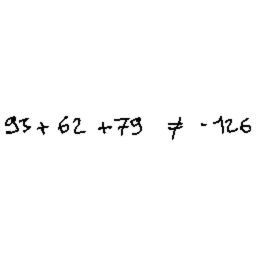 93 + 62 + 79 ≠ -126